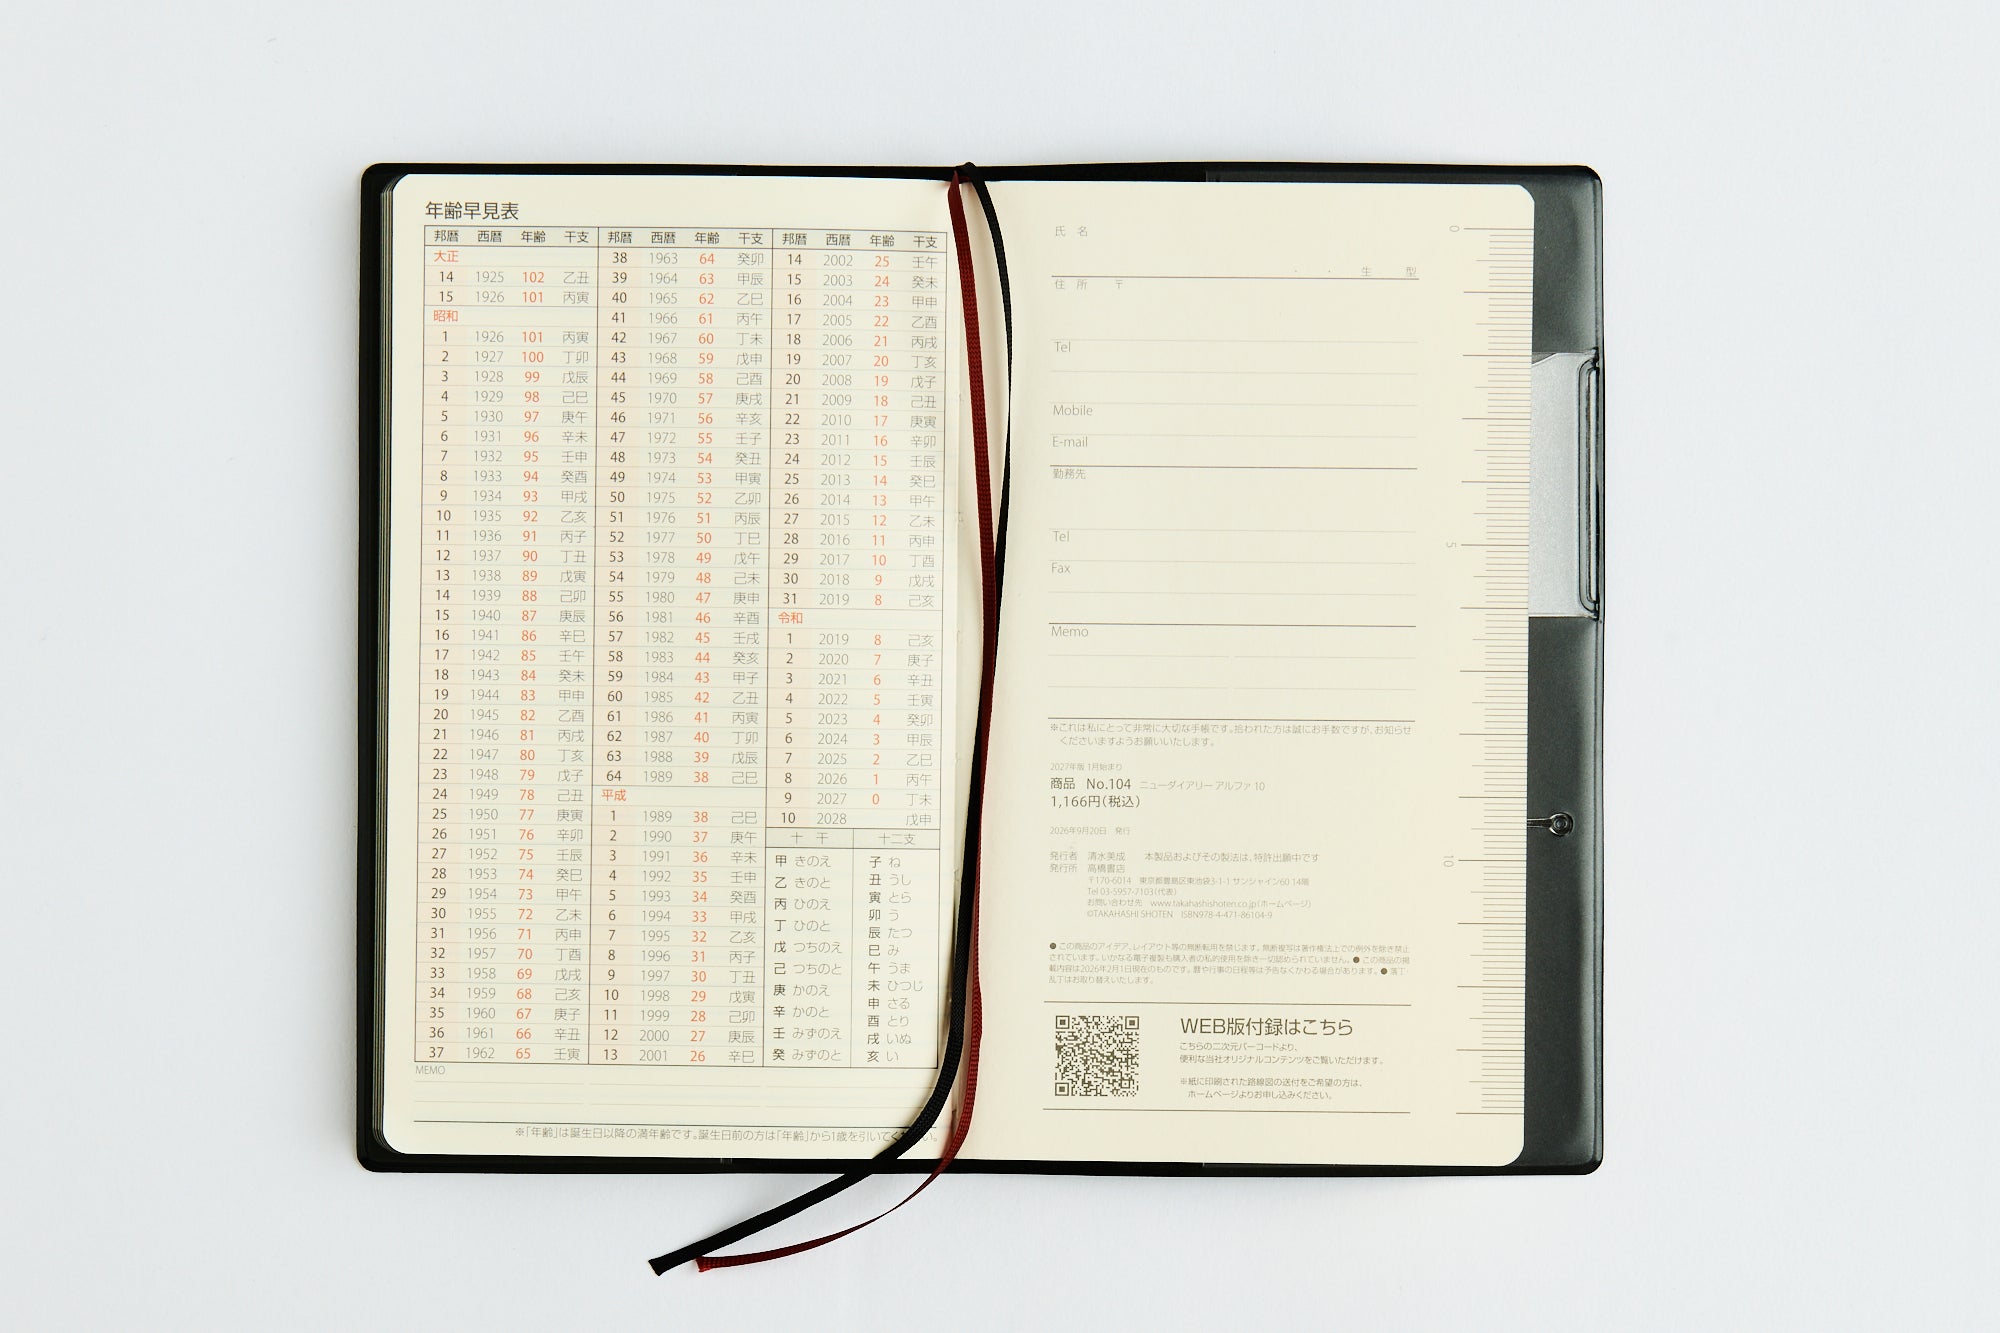 年齢早見表
邦暦 西暦 年齢 干支
大正
14 1925 102 乙丑
15 1926 101 丙寅
昭和
1 1926 101 丙寅
2 1927 100 丁卯
3 1928 99 戊辰
4 1929 98 己巳
5 1930 97 庚午
6 1931 96 辛未
7 1932 95 壬申
8 1933 94 癸酉
9 1934 93 甲戌
10 1935 92 乙亥
11 1936 91 丙子
12 1937 90 丁丑
13 1938 89 戊寅
14 1939 88 己卯
15 1940 87 庚辰
16 1941 86 辛巳
17 1942 85 壬午
18 1943 84 癸未
19 1944 83 甲申
20 1945 82 乙酉
21 1946 81 丙戌
22 1947 80 丁亥
23 1948 79 戊子
24 1949 78 己丑
25 1950 77 庚寅
26 1951 76 辛卯
27 1952 75 壬辰
28 1953 74 癸巳
29 1954 73 甲午
30 1955 72 乙未
31 1956 71 丙申
32 1957 70 丁酉
33 1958 69 戊戌
34 1959 68 己亥
35 1960 67 庚子
36 1961 66 辛丑
37 1962 65 壬寅
邦暦 西暦 年齢 干支
38 1963 64 癸卯
39 1964 63 甲辰
40 1965 62 乙巳
41 1966 61 丙午
42 1967 60 丁未
43 1968 59 戊申
44 1969 58 己酉
45 1970 57 庚戌
46 1971 56 辛亥
47 1972 55 壬子
48 1973 54 癸丑
49 1974 53 甲寅
50 1975 52 乙卯
51 1976 51 丙辰
52 1977 50 丁巳
53 1978 49 戊午
54 1979 48 己未
55 1980 47 庚申
56 1981 46 辛酉
57 1982 45 壬戌
58 1983 44 癸亥
59 1984 43 甲子
60 1985 42 乙丑
61 1986 41 丙寅
62 1987 40 丁卯
63 1988 39 戊辰
64 1989 38 己巳
平成
1 1989 38 己巳
2 1990 37 庚午
3 1991 36 辛未
4 1992 35 壬申
5 1993 34 癸酉
6 1994 33 甲戌
7 1995 32 乙亥
8 1996 31 丙子
9 1997 30 丁丑
10 1998 29 戊寅
11 1999 28 己卯
12 2000 27 庚辰
13 2001 26 辛巳
邦暦 西暦 年齢 干支
14 2002 25 壬午
15 2003 24 癸未
16 2004 23 甲申
17 2005 22 乙酉
18 2006 21 丙戌
19 2007 20 丁亥
20 2008 19 戊子
21 2009 18 己丑
22 2010 17 庚寅
23 2011 16 辛卯
24 2012 15 壬辰
25 2013 14 癸巳
26 2014 13 甲午
27 2015 12 乙未
28 2016 11 丙申
29 2017 10 丁酉
30 2018 9 戊戌
31 2019 8 己亥
令和
1 2019 8 己亥
2 2020 7 庚子
3 2021 6 辛丑
4 2022 5 壬寅
5 2023 4 癸卯
6 2024 3 甲辰
7 2025 2 乙巳
8 2026 1 丙午
9 2027 0 丁未
10 2028 戊申
十 干
甲 きのえ
乙 きのと
丙 ひのえ
丁 ひのと
戊 つちのえ
己 つちのと
庚 かのえ
辛 かのと
壬 みずのえ
癸 みずのと
十二支
子 ね
丑 うし
寅 とら
卯 う
辰 たつ
巳 み
午 うま
未 ひつじ
申 さる
酉 とり
戌 いぬ
亥 い
MEMO
※「年齢」は誕生日以降の満年齢です。誕生日前の方は「年齢」から1歳を引いてく い。
氏 名
・ ・ 生 型
住 所 〒
Tel
Mobile
E-mail
勤務先
Tel
Fax
Memo
※これは私にとって非常に大切な手帳です。拾われた方は誠にお手数ですが、お知らせ
くださいますようお願いいたします。
2027年版 1月始まり
商品 No.104 ニューダイアリー アルファ 10
1,166円(税込)
2026年9月20日 発行
発行者 清水美成 本製品およびその製法は、特許出願中です
発行所 高橋書店
〒170-6014 東京都豊島区東池袋3-1-1 サンシャイン60 14階
Tel 03-5957-7103(代表)
お問い合わせ先 www.takahashishoten.co.jp(ホームページ)
©TAKAHASHI SHOTEN ISBN978-4-471-86104-9
● この商品のアイデア、レイアウト等の無断転用を禁じます。無断複写は著作権法上での例外を除き禁止
されています。いかなる電子複製も購入者の私的使用を除き一切認められていません。● この商品の掲
載内容は2026年2月1日現在のものです。暦や行事の日程等は予告なくかわる場合があります。● 落丁・
乱丁はお取り替えいたします。
WEB版付録はこちら
こちらの二次元バーコードより、
便利な当社オリジナルコンテンツをご覧いただけます。
※紙に印刷された路線図の送付をご希望の方は、
ホームページよりお申し込みください。
0
5
10